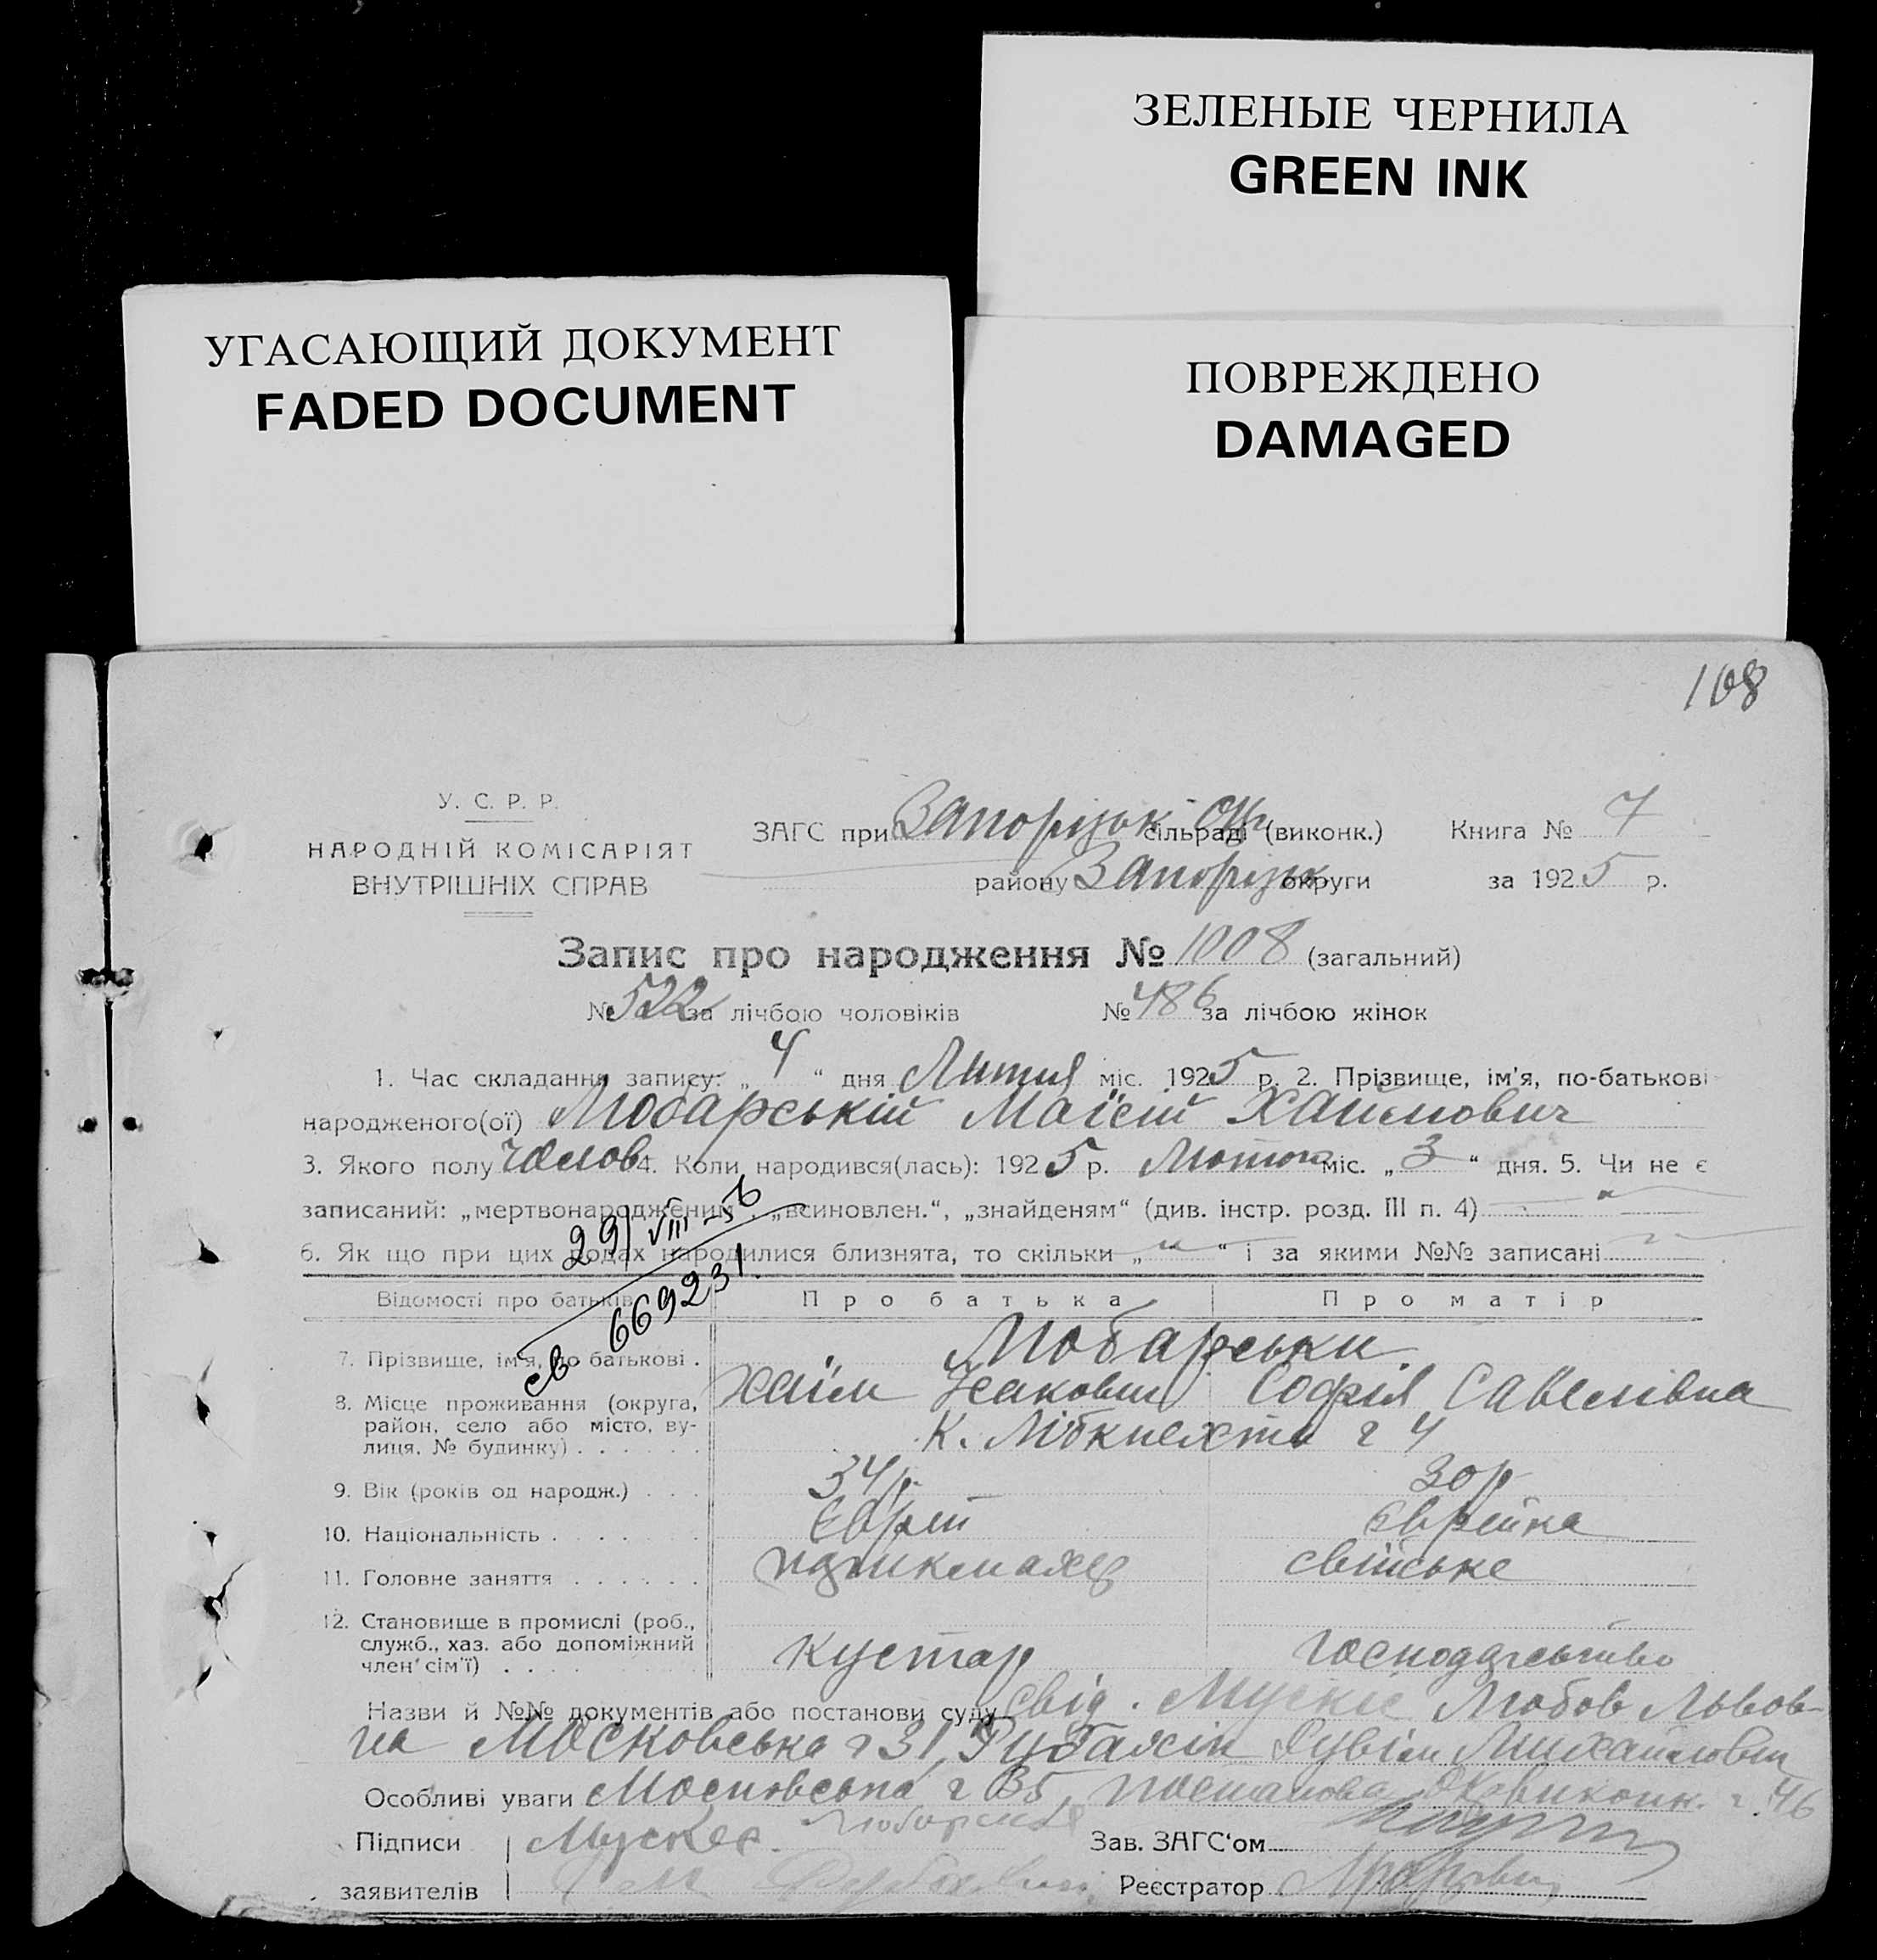 ЗЕЛЕНЫЕ ЧЕРНИЛА
GREEN INK
УГАСАЮЩИЙ ДОКУМЕНТ
FADED DOCUMENT
ПОВРЕЖДЕНО
DAMAGED
108
У. С. Р. Р.
НАРОДНІЙ КОМІСАРІЯТ
ВНУТРІШНІХ СПРАВ
ЗАГС при Запорізьк сільраді (виконк.) Книга № 7
району Запорізьк округи за 1925 р.
Запис про народження № 1008 (загальний)
№ 522 за лічбою чоловіків № 486 за лічбою жінок
1. Час складання запису: „ 4 “ дня Лютня міс. 1925 р. 2. Прізвище, ім'я, по-батькові
народженого(ої) Любарській Маїсій Хаїмович
3. Якого полу чолов 4. Коли народився(лась): 1925 р. Лютого міс. „ 3 “ дня. 5. Чи не є
записаний: „мертвонародженим“, „всиновлен.“, „знайденям“ (див. інстр. розд. III п. 4)
6. Як що при цих родах народилися близнята, то скільки „ “ і за якими №№ записані
29/VIII-56
св 669231
Відомості про батьків Про батька Про матір
7. Прізвище, ім'я, по батькові . Любарськи
8. Місце проживання (округа, Хаїм Ісакович Софія Савелівна
район, село або місто, ву- К. Лібкнехта 4
лиця, № будинку) . . . . . .
9. Вік (років од народж.) . . . 34 р. 30 р
10. Національність . . . . . Єврей Єврейка
11. Головне заняття . . . . . . свійське
12. Становище в промислі (роб.,
служб., хаз. або допоміжний кустар господарьство
член сім'ї) . . . .
Назви й №№ документів або постанови суду Свід. Любов Львов-
на Московська 31, Рувім Михайлович
Особливі уваги Московська 35, постанова Окрвиконк. 46
Підписи Мускес Любарский Зав. ЗАГС'ом
заявителів Реєстратор